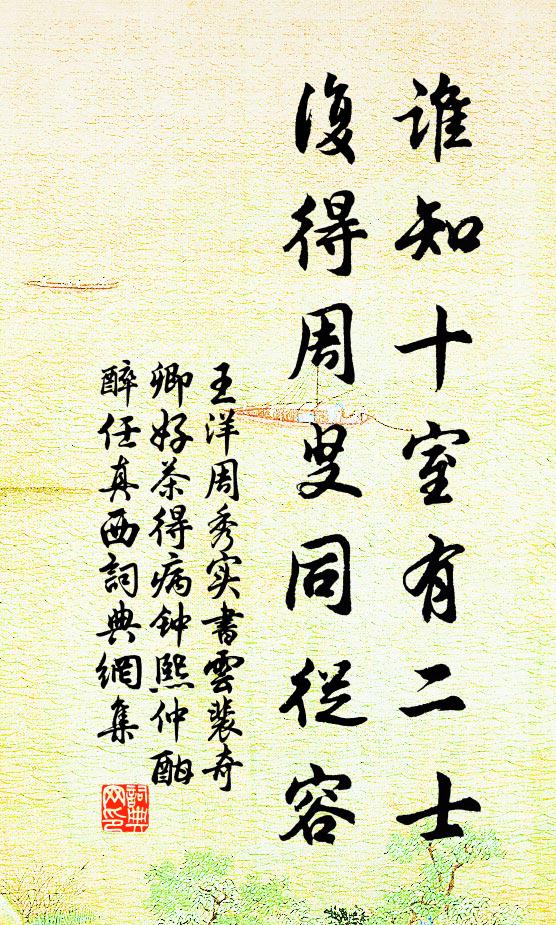 誰知十室有二士
復得周叟同從容
王洋周秀实書雲裴奇
卿好茶得病钟熙仲酣
醉任真西詞典網集
詞典
网印